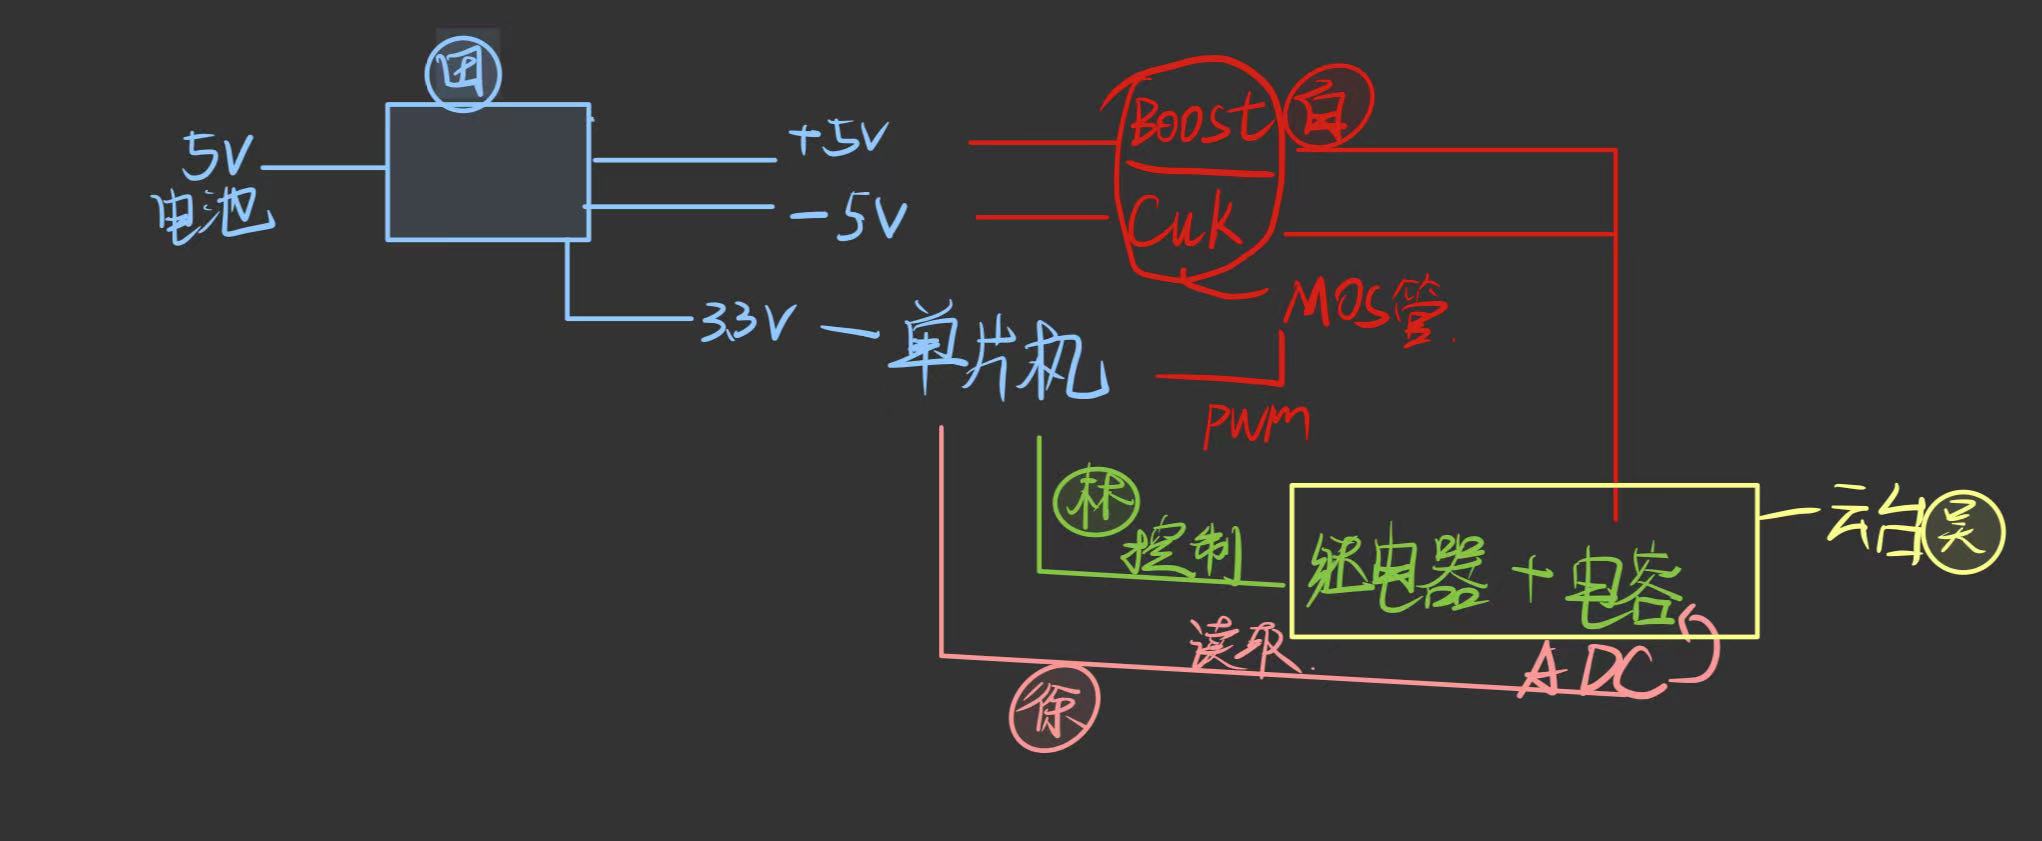 5V
电池
+5V
-5V
3.3V
单片机
Boost
Cuk
MOS管
PWM
林
控制
继电器+电容
云台
吴
读取
ADC
徐